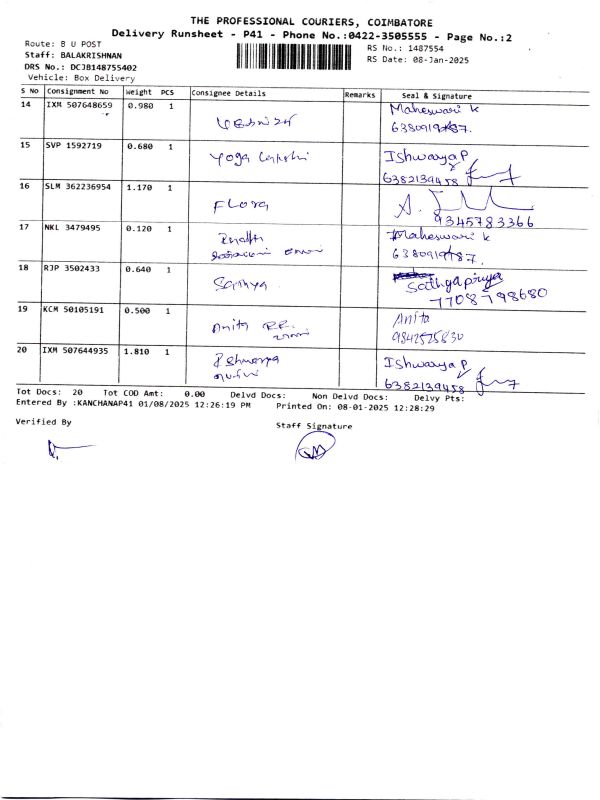 THE PROFESSIONAL COURIERS, COIMBATORE
Delivery Runsheet - P41 - Phone No.:0422-3505555 - Page No.:2
Route: B U POST
RS No.: 1487554
Staff: BALAKRISHNAN
RS Date: 08-Jan-2025
DRS No.: DCJB148755402
Vehicle: Box Delivery
S No Consignment No Weight PCS Consignee Details Remarks Seal & Signature
14 IXM 507648659 0.980 1 Maheswari K
15 SVP 1592719 0.680 1 Yoga Lakshi Ishwarya P
6382139458
16 SLM 362236954 1.170 1 Flora A.
9345783366
17 NKL 3479495 0.120 1 Maheswari K
18 RJP 3502433 0.640 1 Sathya Sathyapriya
7708798680
19 KCM 50105191 0.500 1 Anita R.R. Anita
9842525830
20 IXM 507644935 1.810 1 Ishwarya P
6382139458
Tot Docs: 20 Tot COD Amt: 0.00 Delvd Docs: Non Delvd Docs: Delvy Pts:
Entered By :KANCHANAP41 01/08/2025 12:26:19 PM Printed On: 08-01-2025 12:28:29
Verified By Staff Signature